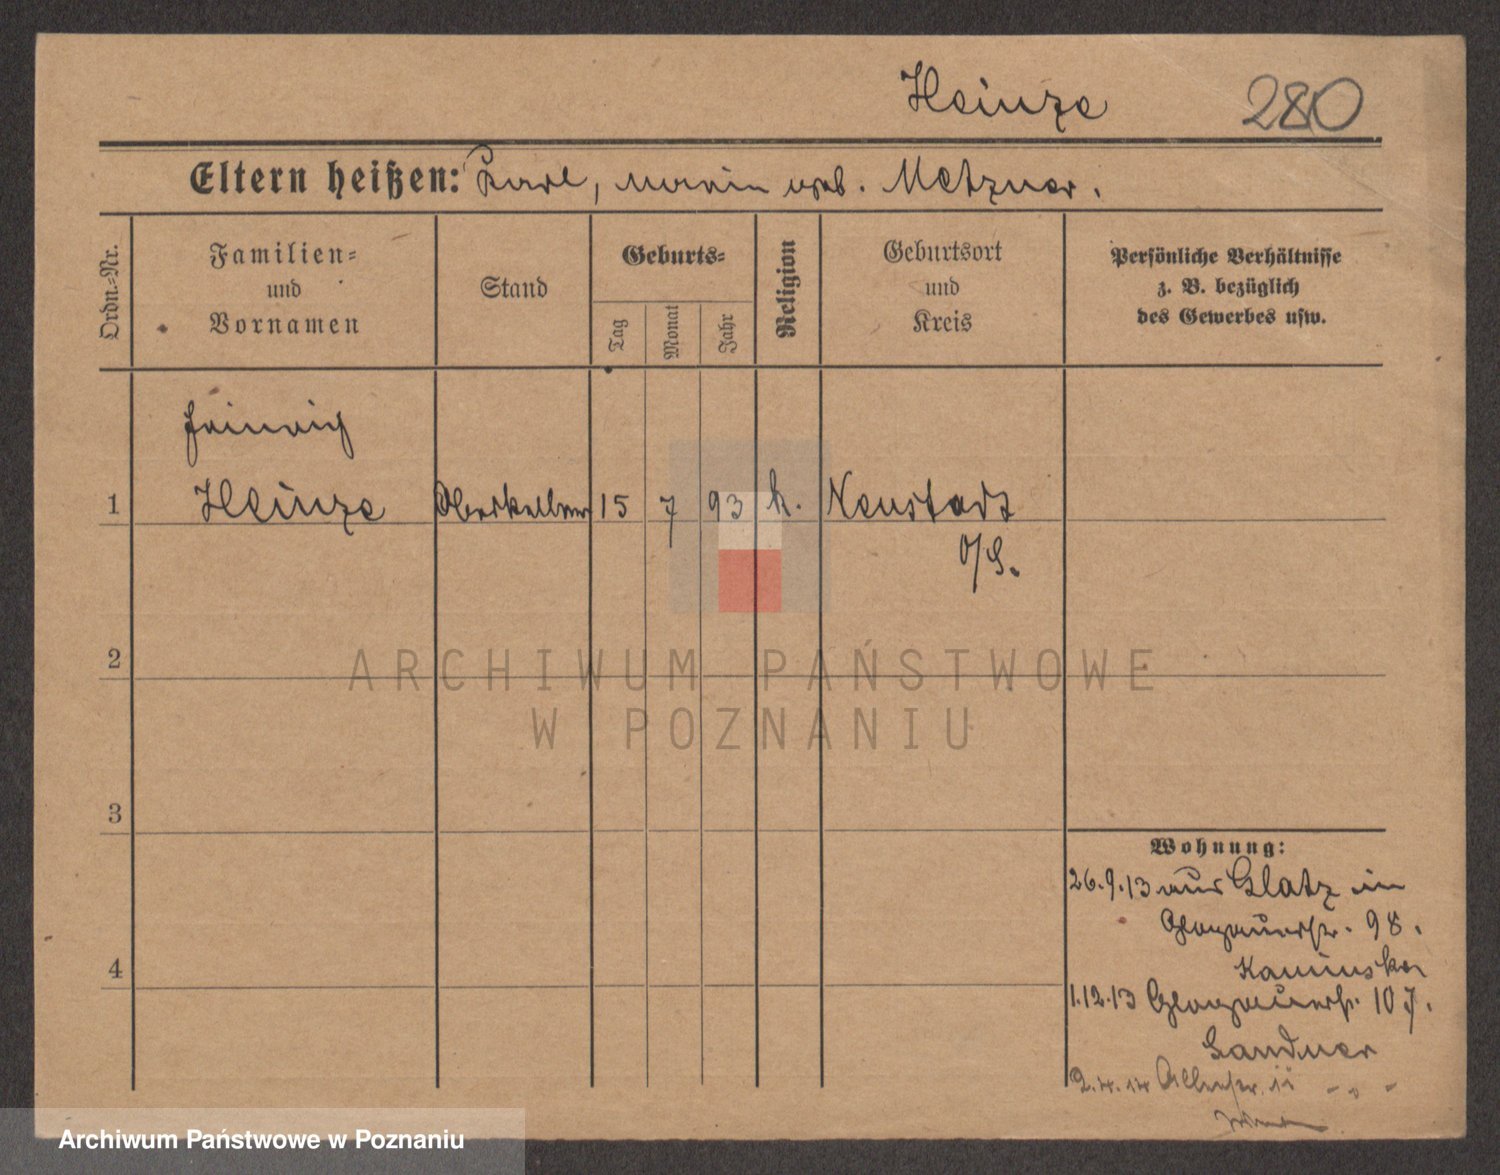 Heinze 280
Eltern heißen: Karl, Marie geb. Metzner.
Ordn.-Nr.
Familien-
und
Vornamen
Stand
Geburts-
Tag
Monat
Jahr
Religion
Geburtsort
und
Kreis
Persönliche Verhältnisse
z. B. bezüglich
des Gewerbes usw.
Heinrich
1 Heinze Oberkellner 15 7 93 k. Neustadt
O/S.
2
ARCHIWUM PAŃSTWOWE
W POZNANIU
3
Wohnung:
26.9.13 aus Glatz in
Glogauerstr. 98.
Kaminsker
4
1.12.13 Glogauerstr. 107.
Sandner
2.4.14
Archiwum Państwowe w Poznaniu